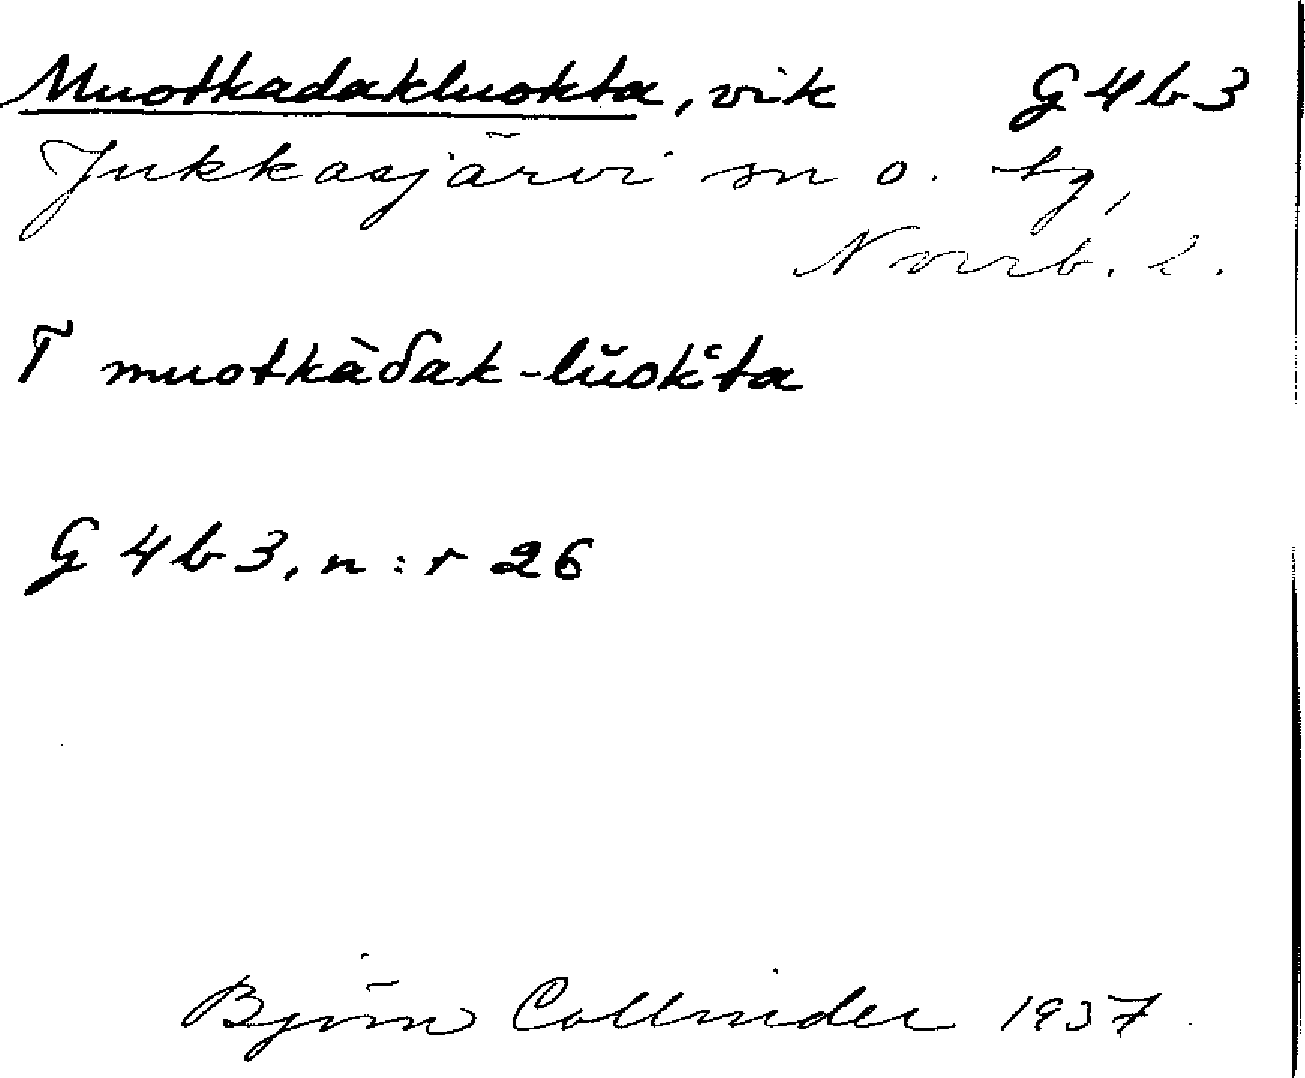 Muotkadakluokta, vik G4b3
Jukkasjärvi sn o. tg,
Norrb. l.
T muotkàδak-lŭokʿta
G4b3, n:r 26
Björn Collinder 1937